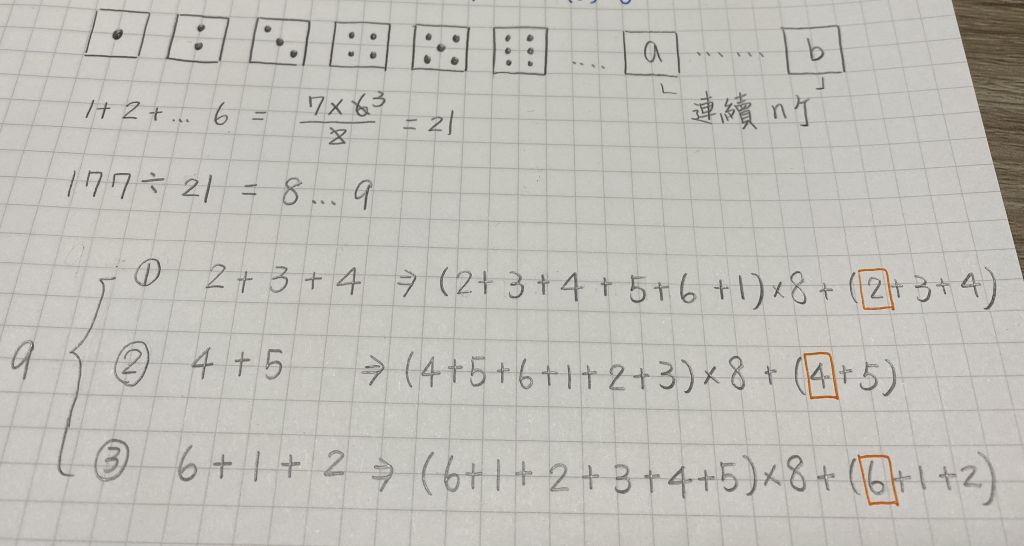 .... a ...... b
連續 n 个
1+2+... 6 = 7×6³/2 = 21
177 ÷ 21 = 8 ... 9
① 2+3+4 ⇒ (2+3+4+5+6+1)×8+(2+3+4)
9 { ② 4+5 ⇒ (4+5+6+1+2+3)×8+(4+5)
③ 6+1+2 ⇒ (6+1+2+3+4+5)×8+(6+1+2)